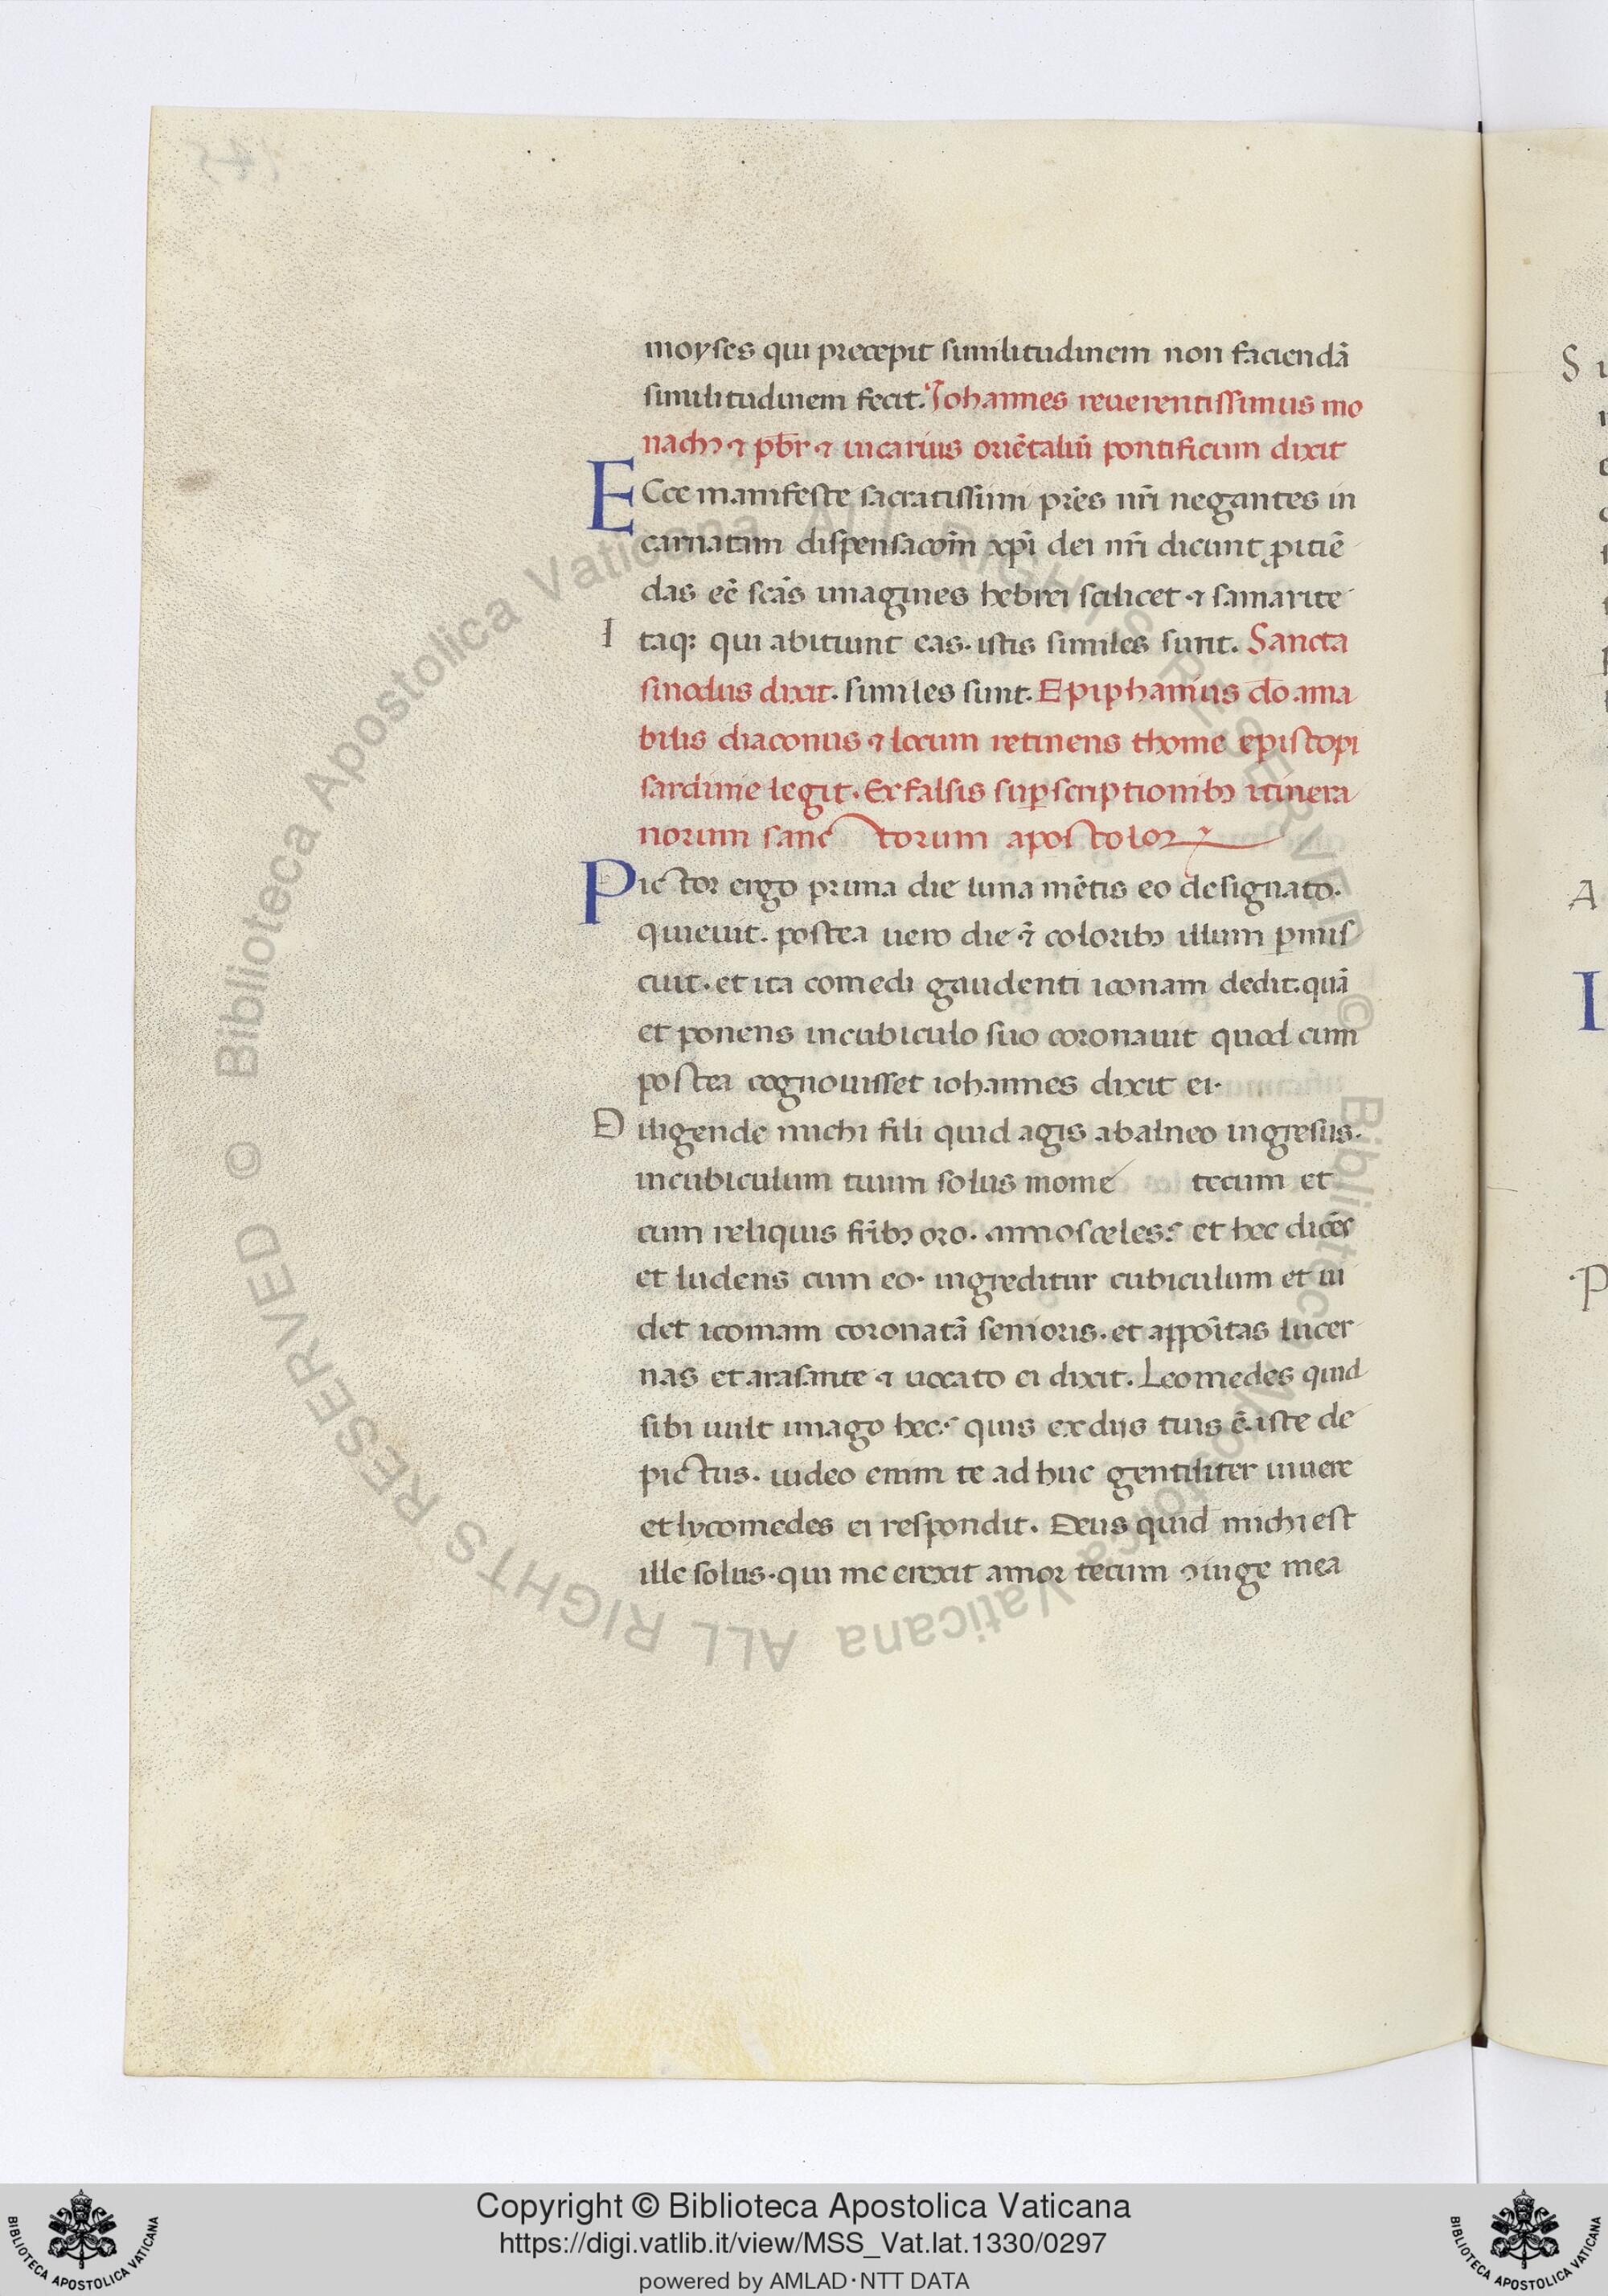 moyses qui precepit similitudinem non faciendā
similitudinem fecit. Iohannes reuerentissimus mo
nachꝰ ⁊ pb̄r ⁊ uicarius oriētaliū pontificum dixit
ECce manifeste sacratissimi pr̄es nr̄i negantes in
carnatam dispensacōm̄ xp̄i dei nr̄i dicunt ꝓitiē
das eē scās imagines hebrei scilicet ⁊ samarite
Itaqꝫ qui abitiunt eas. istis similes sunt. Sancta
sinodus dixit. similes sunt. Epiphanius do ama
bilis diaconus ⁊ locum retinens thome episcopi
sardinie legit. Ex falsis suꝑscriptionibꝰ itinera
norum sanc torum apostoloꝝ
Pictor ergo prima die luna mētis eo designato.
quieuit. postea uero die ⁊ coloribꝰ illum ꝑmis
cuit. et ita comedi gaudenti iconam dedit. quā
et ponens in cubiculo suo coronauit quod cum
postea cognouisset iohannes dixit ei.
Diligende michi fili quid agis abalneo ingresus.
incubiculum tuum solus mome tecum et
cum reliquis frībꝰ oro. annosceles? et hec dicēs
et ludens cum eo. ingreditur cubiculum et ui
det icomam coronatā senioris. et appoītas lucer
nas et arasante ⁊ uocato ei dixit. Leomedes quid
sibi uult imago hec? quis ex diis tuis ē. iste de
pictus. uideo enim te ad huc gentiliter uiuere
et lycomedes ei respondit. Deus quid michi est
ille solus. qui me erexit amor tecum ꝯiuge mea
Copyright © Biblioteca Apostolica Vaticana
https://digi.vatlib.it/view/MSS_Vat.lat.1330/0297
powered by AMLAD · NTT DATA
BIBLIOTECA APOSTOLICA VATICANA
BIBLIOTECA APOSTOLICA VATICANA
© Biblioteca Apostolica Vaticana ALL RIGHTS RESERVED
© Biblioteca Apostolica Vaticana ALL RIGHTS RESERVED